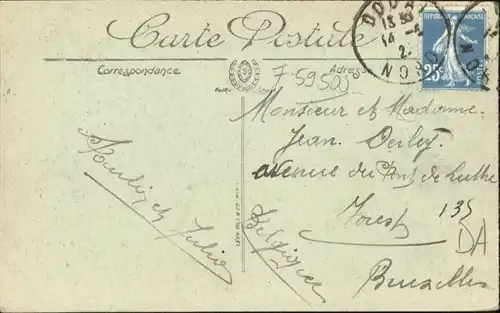 Carte Postale
Correspondance
Adresse
F-59500
DOUAI
13 30
14 -
2
NORD
REPUBLIQUE FRANÇAISE
25c
Monsieur et Madame
Jean
avenue du Pont de Luttre
Forest 135
Bruxelles
Belgique
DA
et Julia